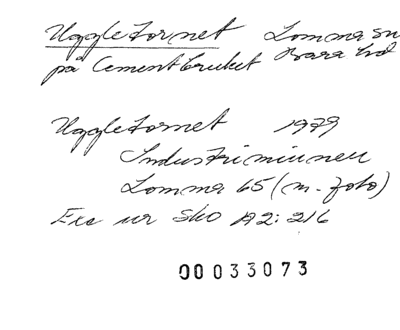 Uggletornet Lomma sn
på Cementbruket Bara hd
Uggletornet 1979
Industriminnen
Lomma 65 (m. foto)
Exc ur Sko A2: 216
00033073